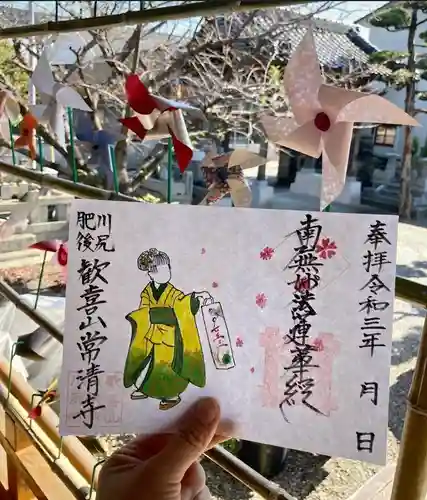 奉拝 令和三年 月 日
南無妙法蓮華経
肥後 川尻
歓喜山常清寺